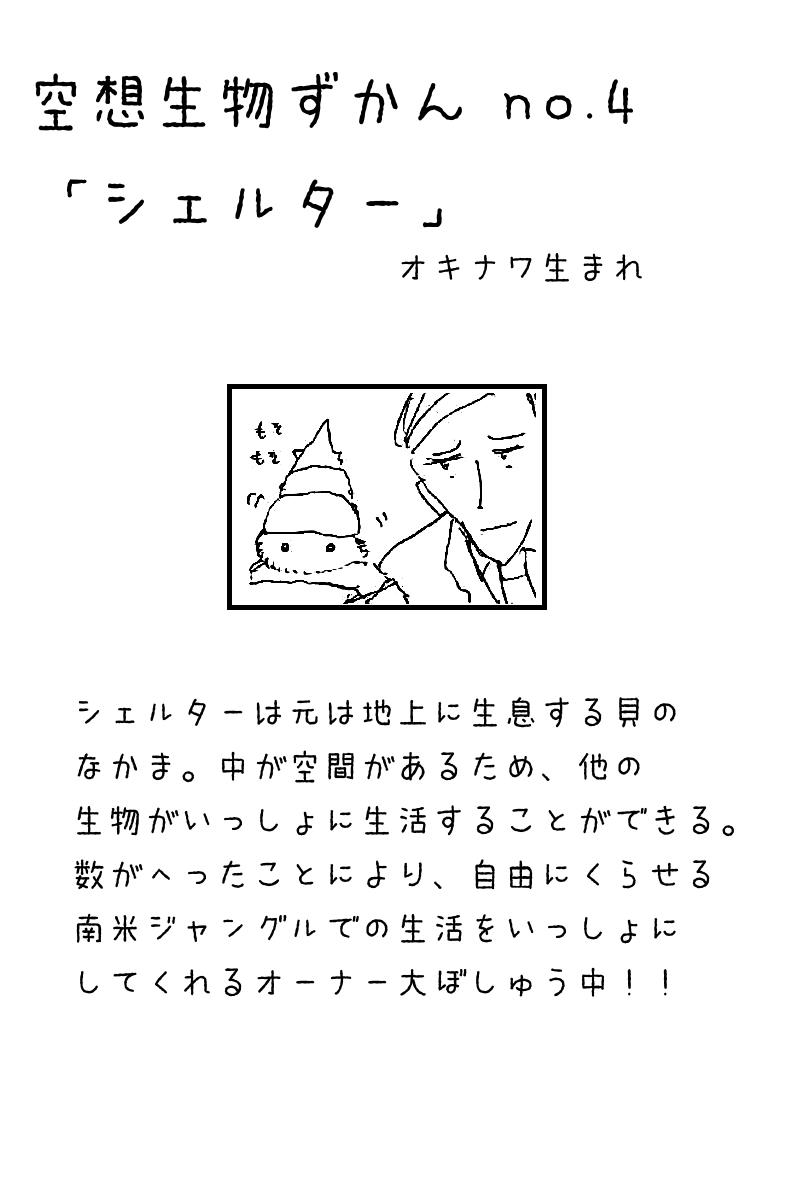 空想生物ずかん no.4
「シェルター」
オキナワ生まれ
もそ
もそ
シェルターは元は地上に生息する貝の
なかま。中が空間があるため、他の
生物がいっしょに生活することができる。
数がへったことにより、自由にくらせる
南米ジャングルでの生活をいっしょに
してくれるオーナー大ぼしゅう中!!